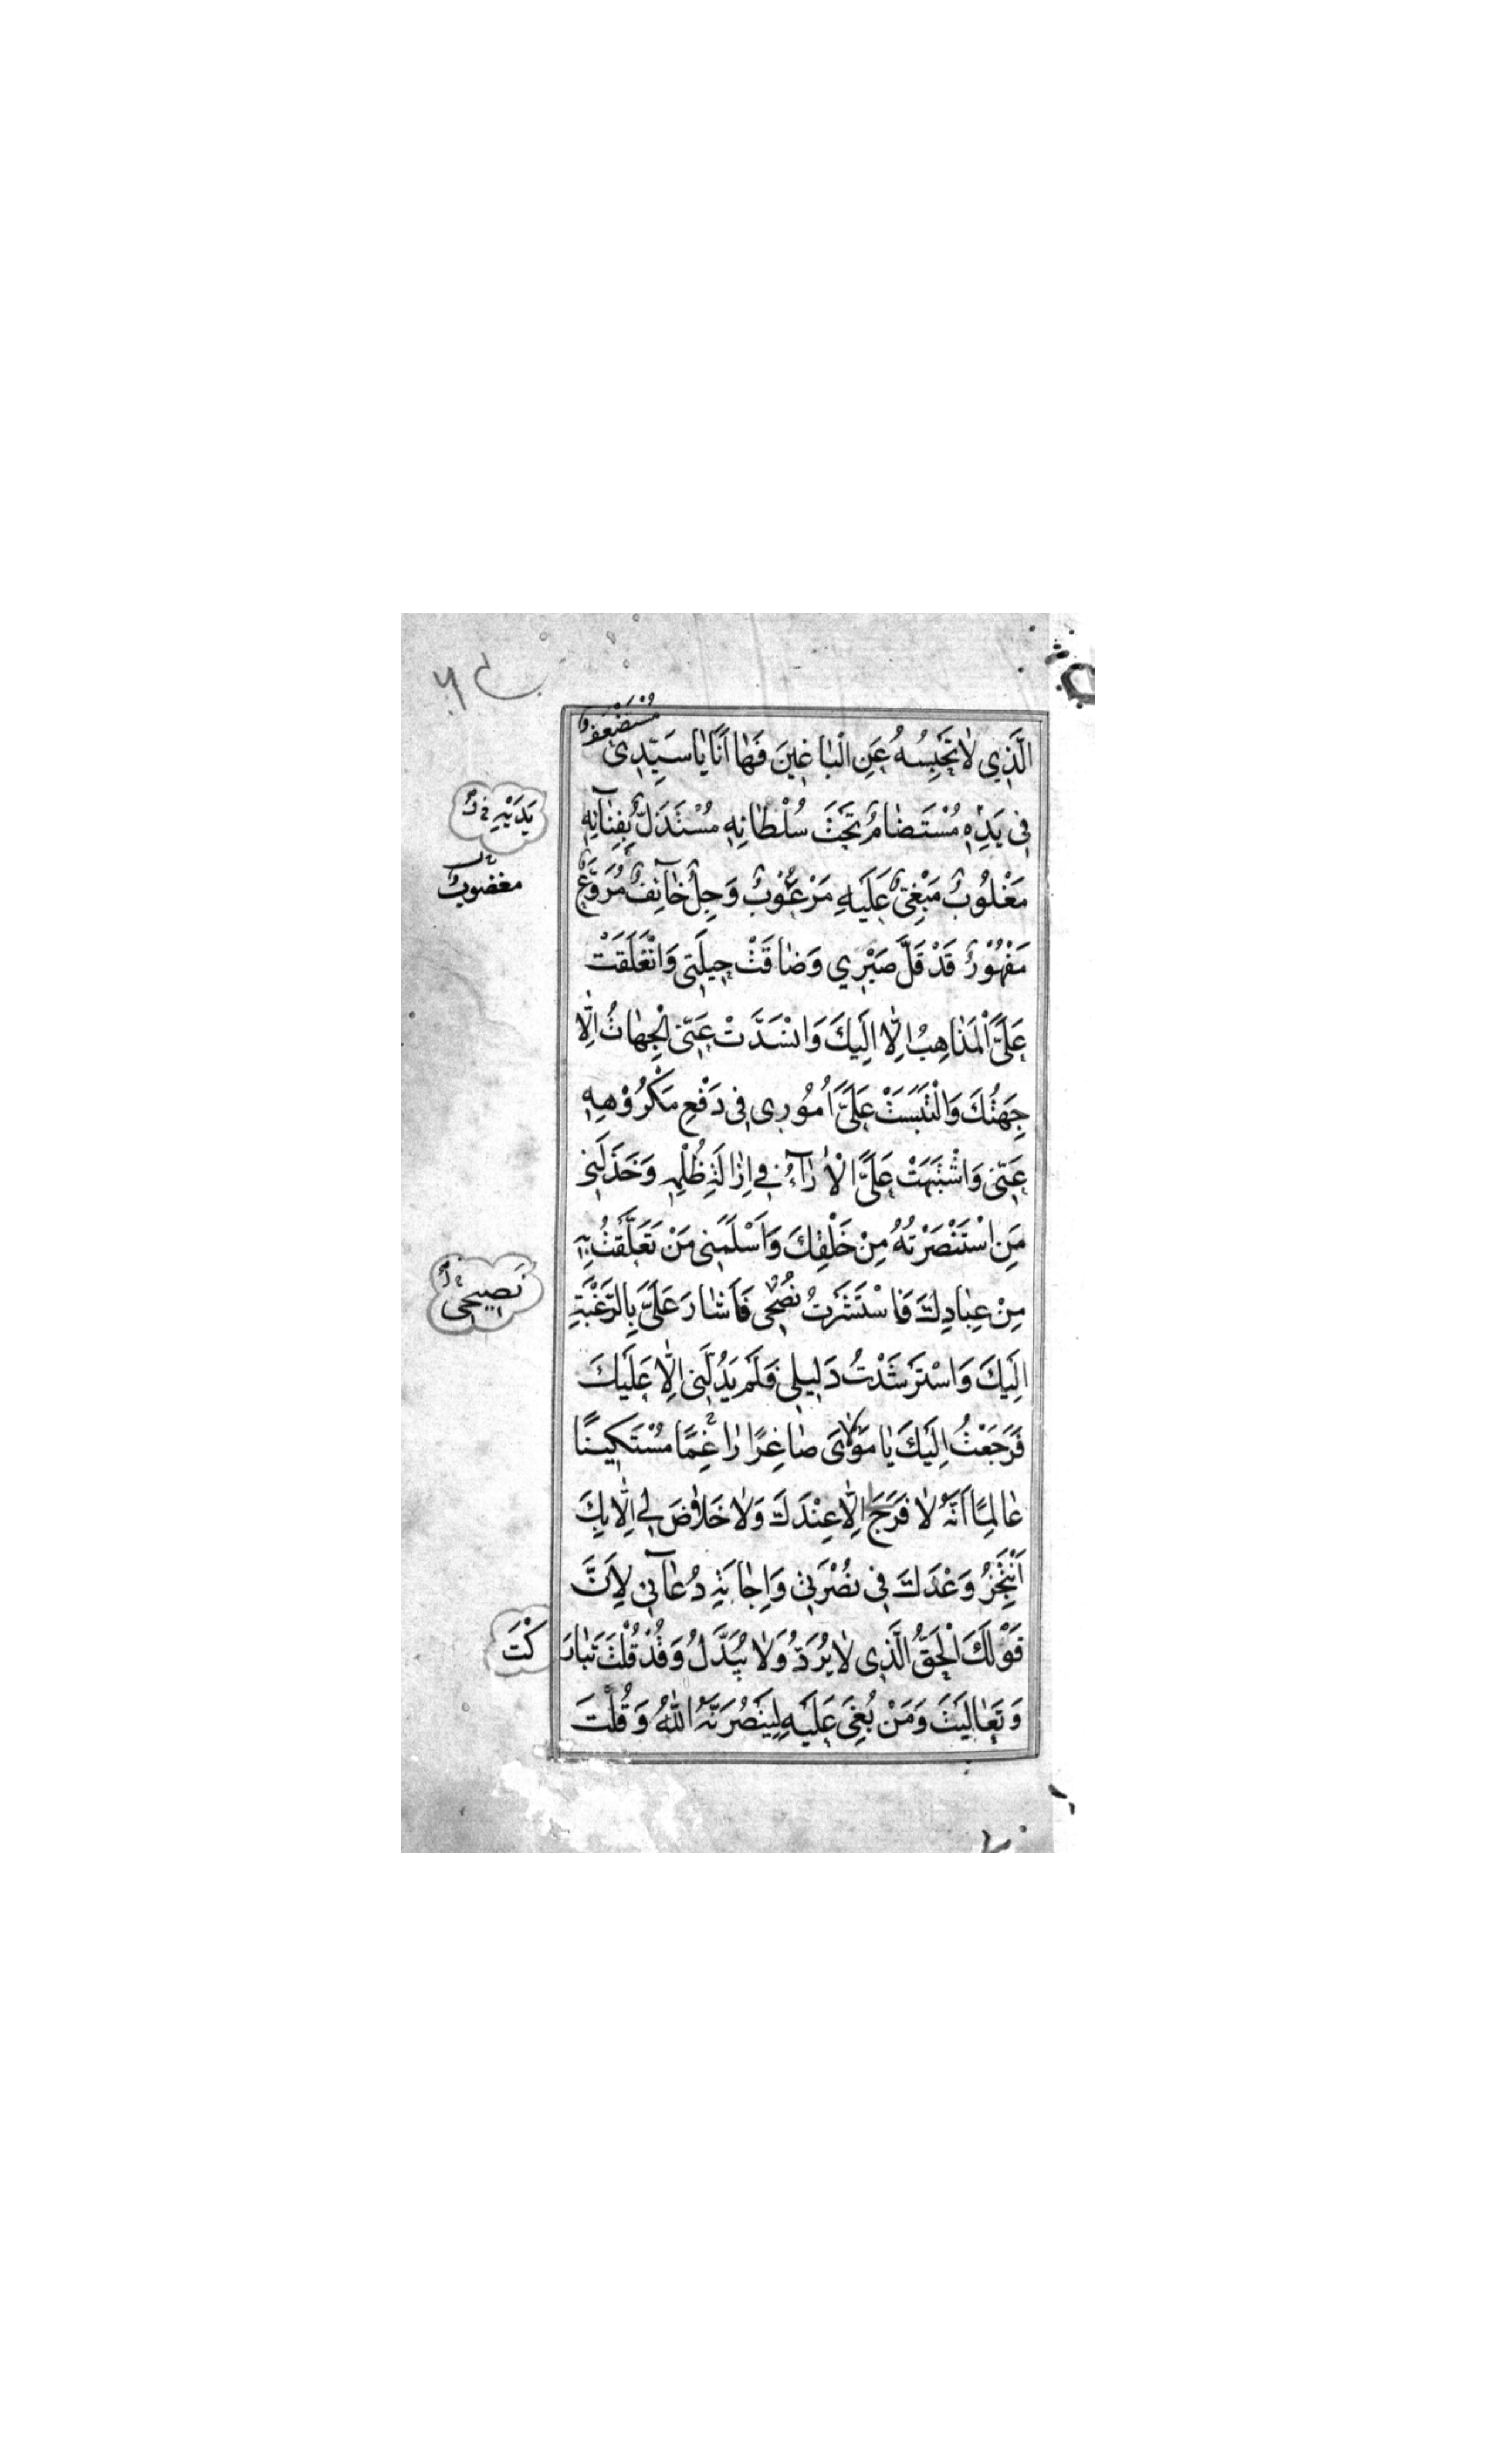 مُسْتَضْعَفٌ
الَّذِي لَا تَحْبِسُهُ عَنِ الْبَاغِينَ فَهَا أَنَا يَا سَيِّدِي
فِي يَدِهِ مُسْتَضَامٌ تَحْتَ سُلْطَانِهِ مُسْتَذَلٌّ بِفِنَآئِهِ
يَدَيْهِ
مَغْلُوبٌ مَبْغِيٌّ عَلَيْهِ مَرْعُوبٌ وَجِلٌ خَآئِفٌ مُرَوَّعٌ
مغضوب
مَقْهُورٌ قَدْ قَلَّ صَبْرِي وَضَاقَتْ حِيلَتِي وَانْغَلَقَتْ
عَلَيَّ الْمَذَاهِبُ اِلَّا اِلَيْكَ وَانْسَدَّتْ عَنِّي الْجِهَاتُ اِلَّا
جِهَتُكَ وَالْتَبَسَتْ عَلَيَّ اُمُورِي فِي دَفْعِ مَكْرُوْهِهِ
عَنِّي وَاشْتَبَهَتْ عَلَيَّ الْأَرَآءُ فِي اِزَالَةِ ظُلْمِهِ وَخَذَلَنِي
مَنِ اسْتَنْصَرْتُهُ مِنْ خَلْقِكَ وَاَسْلَمَنِي مَنْ تَعَلَّقْتُ بِهِ
مِنْ عِبَادِكَ فَاسْتَشَرْتُ نُصْحِي فَاَشَارَ عَلَيَّ بِالرَّغْبَةِ
نَصِيحِي
اِلَيْكَ وَاسْتَرْشَدْتُ دَلِيلِي فَلَمْ يَدُلَّنِي اِلَّا عَلَيْكَ
فَرَجَعْتُ اِلَيْكَ يَا مَوْلَايَ صَاغِرًا رَاغِمًا مُسْتَكِينًا
عَالِمًا اَنَّهُ لَا فَرَجَ اِلَّا عِنْدَكَ وَلَا خَلَاصَ لِي اِلَّا بِكَ
اَنْتَجِزُ وَعْدَكَ فِي نُصْرَتِي وَاِجَابَةِ دُعَآئِي لِاَنَّ
قَوْلَكَ الْحَقُّ الَّذِي لَا يُرَدُّ وَلَا يُبَدَّلُ وَقَدْ قُلْتَ تَبَارَكْتَ
وَتَعَالَيْتَ وَمَنْ بُغِيَ عَلَيْهِ لَيَنْصُرَنَّهُ اللهُ وَقُلْتَ